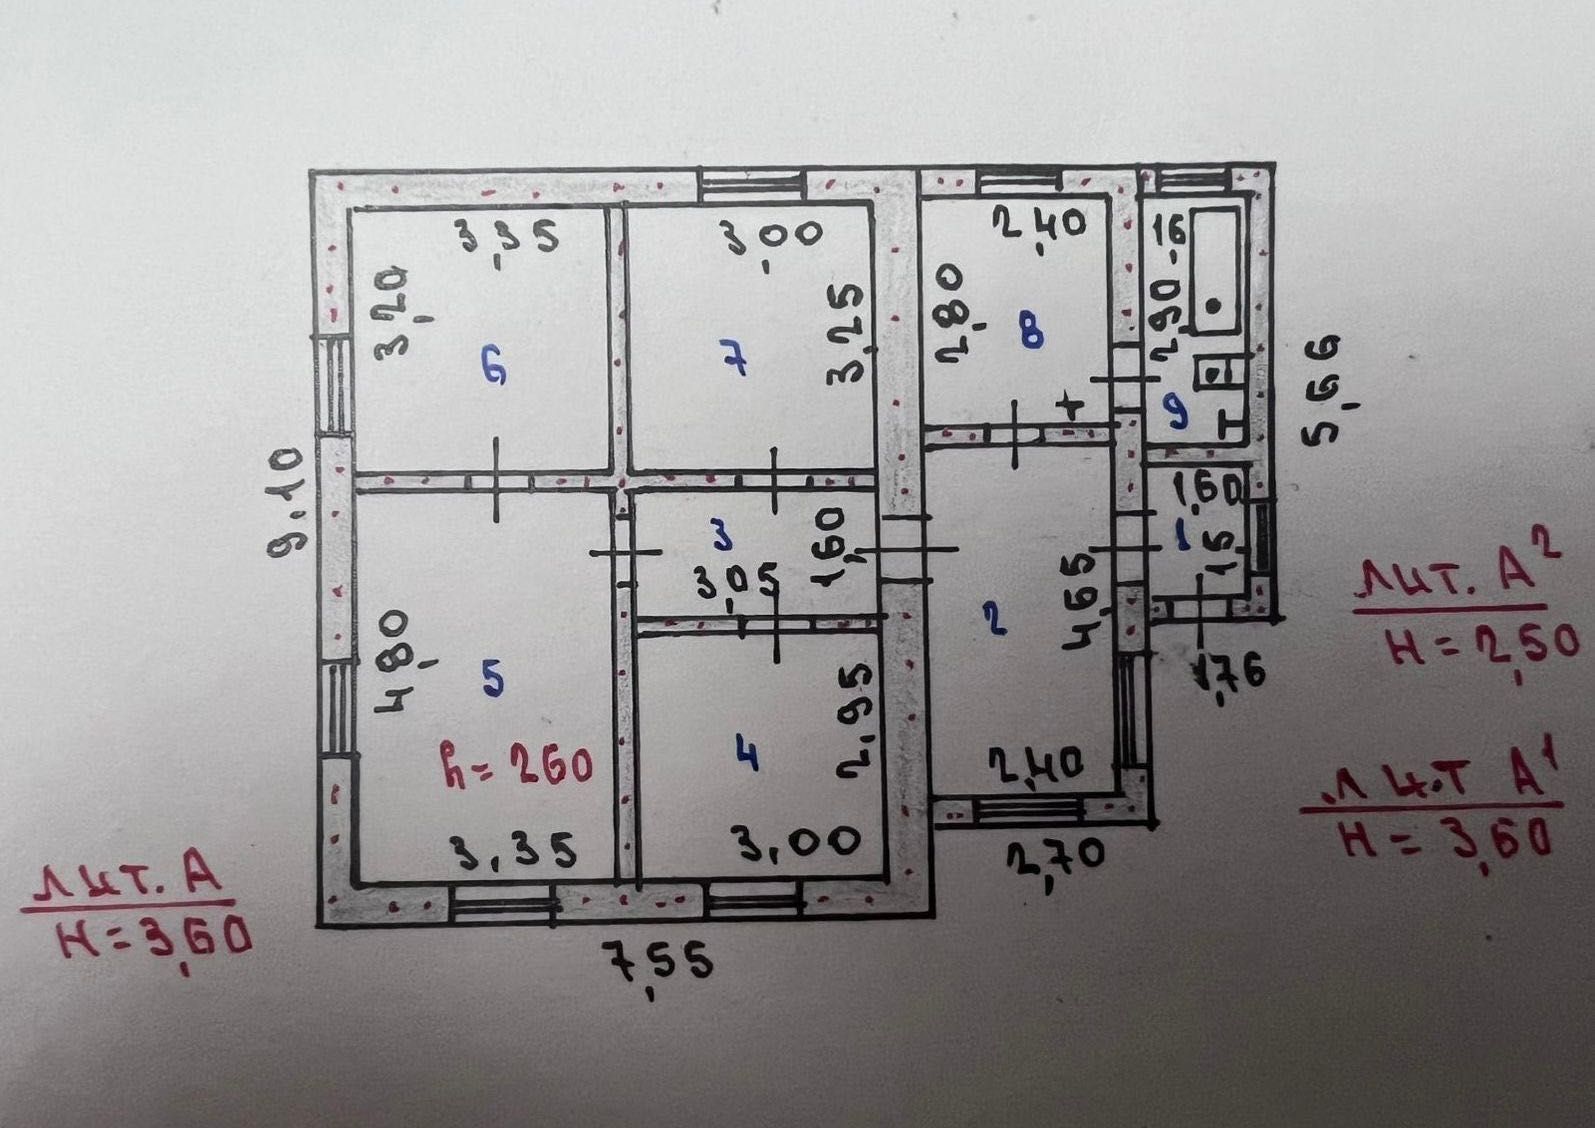 3,35
3,00
2,40
1,6
3,20
6
7
3,25
2,80
8
2,90
9
5,66
9,10
3
3,05
1,60
1,60
1
1,5
4,80
5
h= 260
3,35
4
2,95
3,00
2
4,65
2,40
2,70
1,76
7,55
лит. А
H=3,60
лит. А²
H=2,50
лит А¹
H=3,60